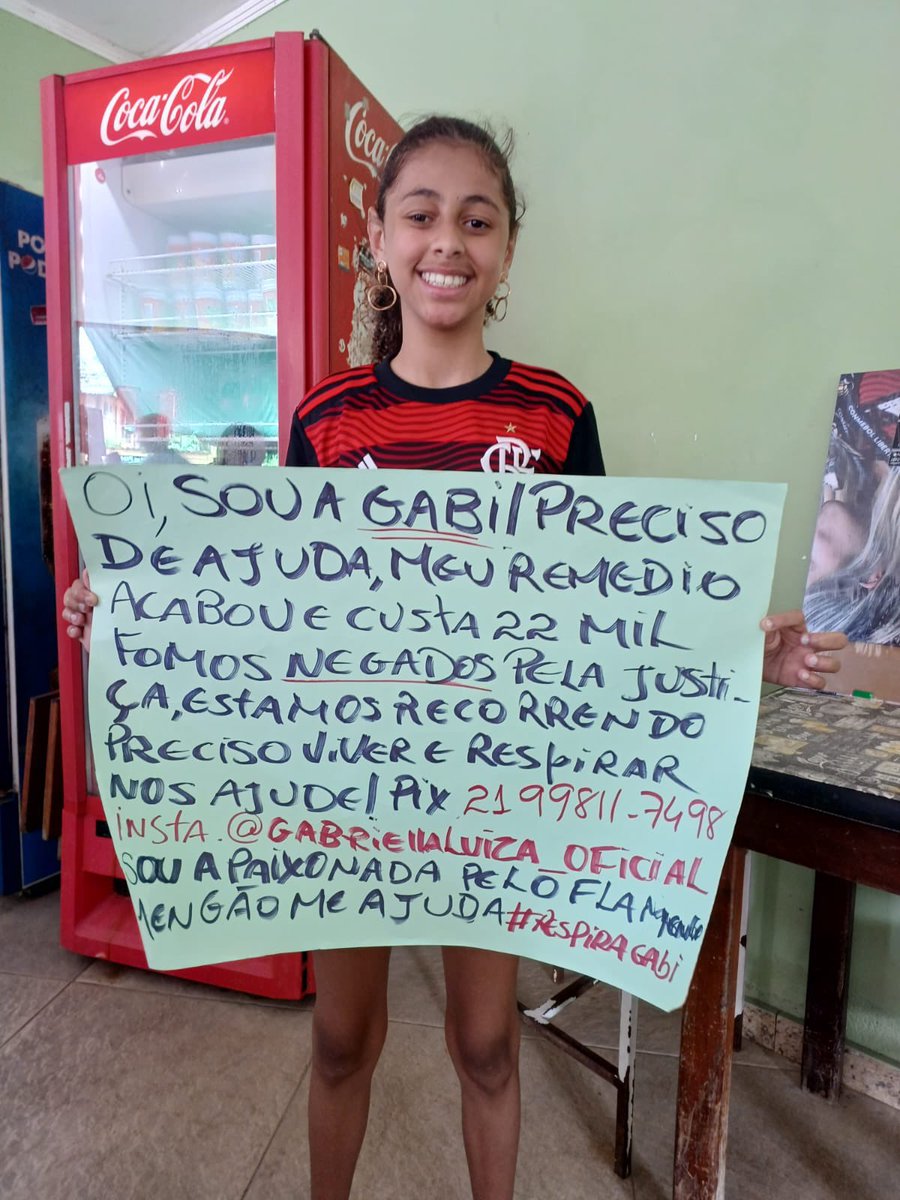 Coca-Cola
Coca
PO
POD
OI, SOU A GABI/PRECISO
DE AJUDA, MEU REMEDIO
ACABOU E CUSTA 22 MIL
FOMOS NEGADOS PELA JUSTI-
ÇA, ESTAMOS RECORRENDO
PRECISO VIVER E RESPIRAR
NOS AJUDE/ PIX 21 99811-7498
INSTA. @GABRIELLALUIZA_OFICIAL
SOU APAIXONADA PELO FLAMENGO
MENGÃO ME AJUDA #RESPIRAGABI